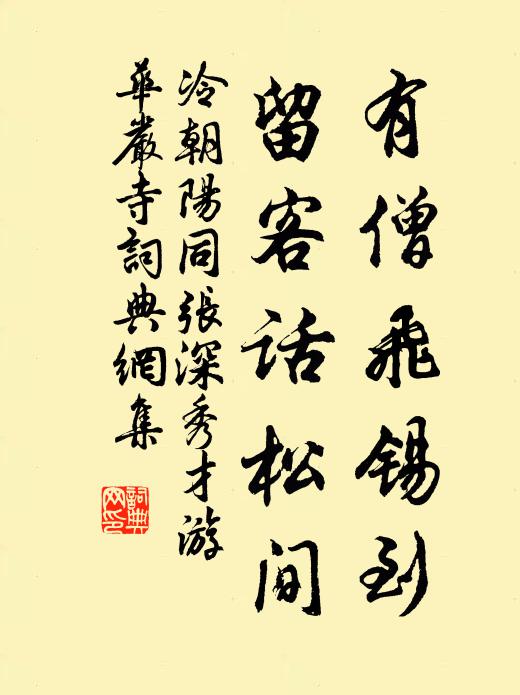 有僧飛锡到
留客话松间
冷朝陽同張深秀才游
華嚴寺詞典網集
詞典
网印